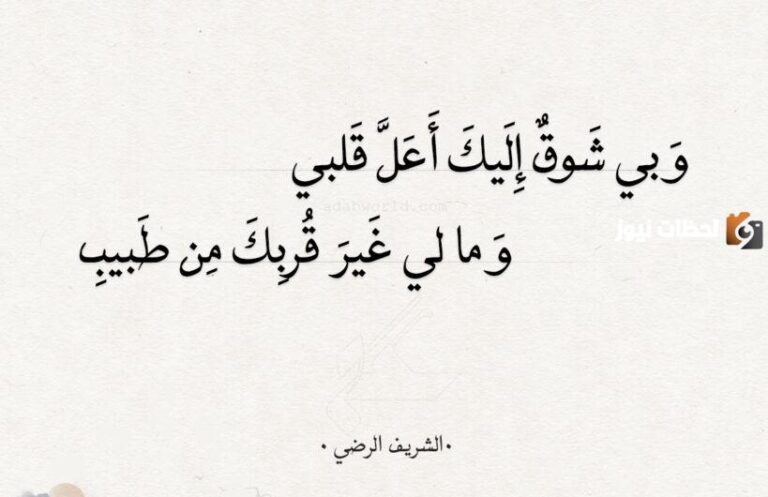 وَ بي شَوقٌ إِلَيكَ أَعَلَّ قَلبي
adabworld.com
وَ ما لي غَيرَ قُربِكَ مِن طَبيبِ
لحظات نيوز
• الشريف الرضي •